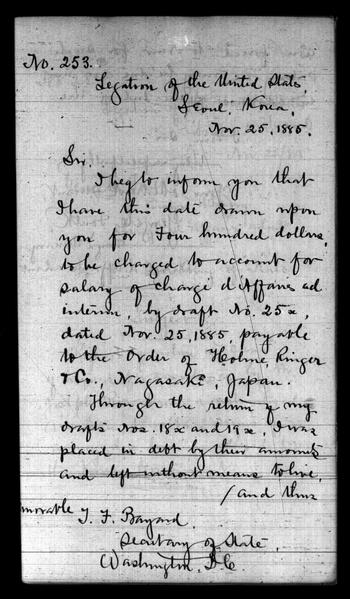 No. 253.
Legation of the United States,
Seoul, Korea,
Nov. 25, 1885.
Sir.
I beg to inform you that
I have this date drawn upon
you for Four hundred dollars,
to be charged to account for
salary of chargé d'Affaires ad
interim, by draft No. 25x,
dated Nov. 25, 1885, payable
to the Order of Holme, Ringer
& Co., Nagasaki, Japan.
Through the return of my
drafts Nos. 18x and 19x, I was
placed in debt by their amounts
and left without means to live,
/and thus
norable T. F. Bayard,
Secretary of State,
Washington, D.C.